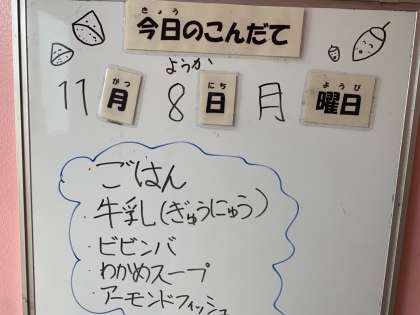 きょう
今日のこんだて
ようか
がつ にち ようび
11月 8日 月曜日
・ごはん
・牛乳(ぎゅうにゅう)
・ビビンバ
・わかめスープ
・アーモンドフィッシュ